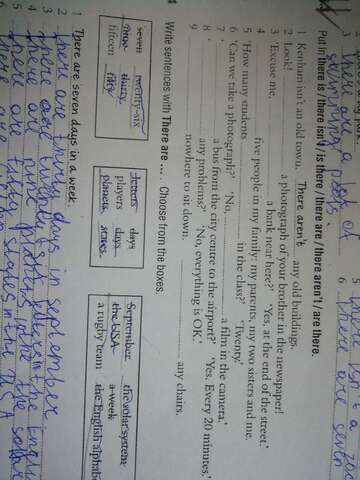 there are
swimming pools.
6 there are seven
Put in there is / there isn't / is there / there are / there aren't / are there.
1 Kenham isn't an old town. There aren't any old buildings.
2 Look! a photograph of your brother in the newspaper!
3 'Excuse me, a bank near here?' 'Yes, at the end of the street.'
4 five people in my family: my parents, my two sisters and me.
5 'How many students in the class?' 'Twenty.'
6 'Can we take a photograph?' 'No, a film in the camera.'
7 ' a bus from the city centre to the airport?' 'Yes. Every 20 minutes.'
8 ' any problems?' 'No, everything is OK.'
9 nowhere to sit down. any chairs.
4 Write sentences with There are ... . Choose from the boxes.
seven twenty-six
nine thirty
fifteen fifty
letters days
players days
planets states
September the solar system
the USA a week
a rugby team the English alphabet
1 There are seven days in a week.
2 there are thirty days in september
3 there are twenty-six letters in the English
4 there are nine planets in the solar
5 there are fifteen
there are fifty states in the USA